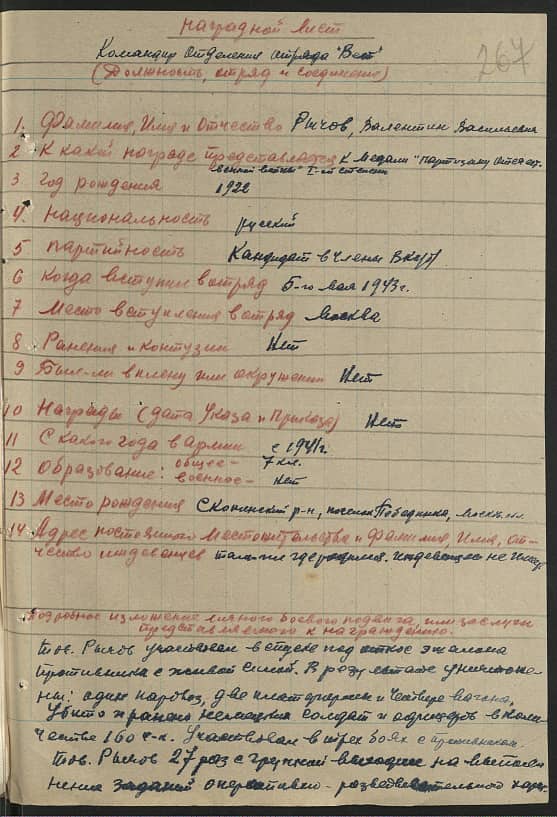 Наградной лист
Командир отделения отряда "Вест"
(Должность, отряд и соединение)
267
1. Фамилия, Имя и Отчество Рычов, Валентин Васильевич
2 К какой награде представляется К медали "Партизану Отечест-
венной войны" I-ой степени
3 Год рождения 1922
4. Национальность русский
5 Партийность Кандидат в члены ВКП(б)
6 Когда вступил в отряд 5-го мая 1943 г.
7 Место вступления в отряд Москва
8 Ранения и контузии Нет
9 Был-ли в плену или окружении Нет
10 Награды (дата Указа и Приказа) Нет
11 С какого года в армии с 1941 г.
12 Образование: общее- 7 кл.
военное- нет
13 Место рождения р-н, поселок Победника, Москв. обл.
14 Адрес постоянного местожительства и Фамилия Имя, от-
чество иждевенцев там-же где родился. Иждевенцев не имеет
Подробное изложение личного боевого подвига, или заслуги
представляемого к награждению.
Тов. Рычов участвовал в спуске под откос эшалона
противника с живой силой. В результате уничтоже-
ны: один паровоз, две платформы и четыре вагона,
убито и ранено немецких солдат и офицеров в коли-
честве 160 ч-к. Участвовал в трех боях с противником.
Тов. Рычов 27 раз с группой выходил на выпол-
нение заданий оперативно-разведывательного харак-